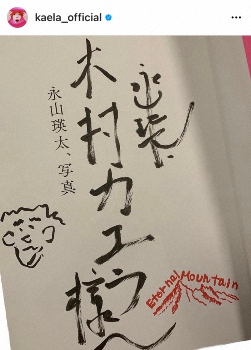 kaela_official
木村カエラ様へ
永山瑛太、写真
Eternal Mountain